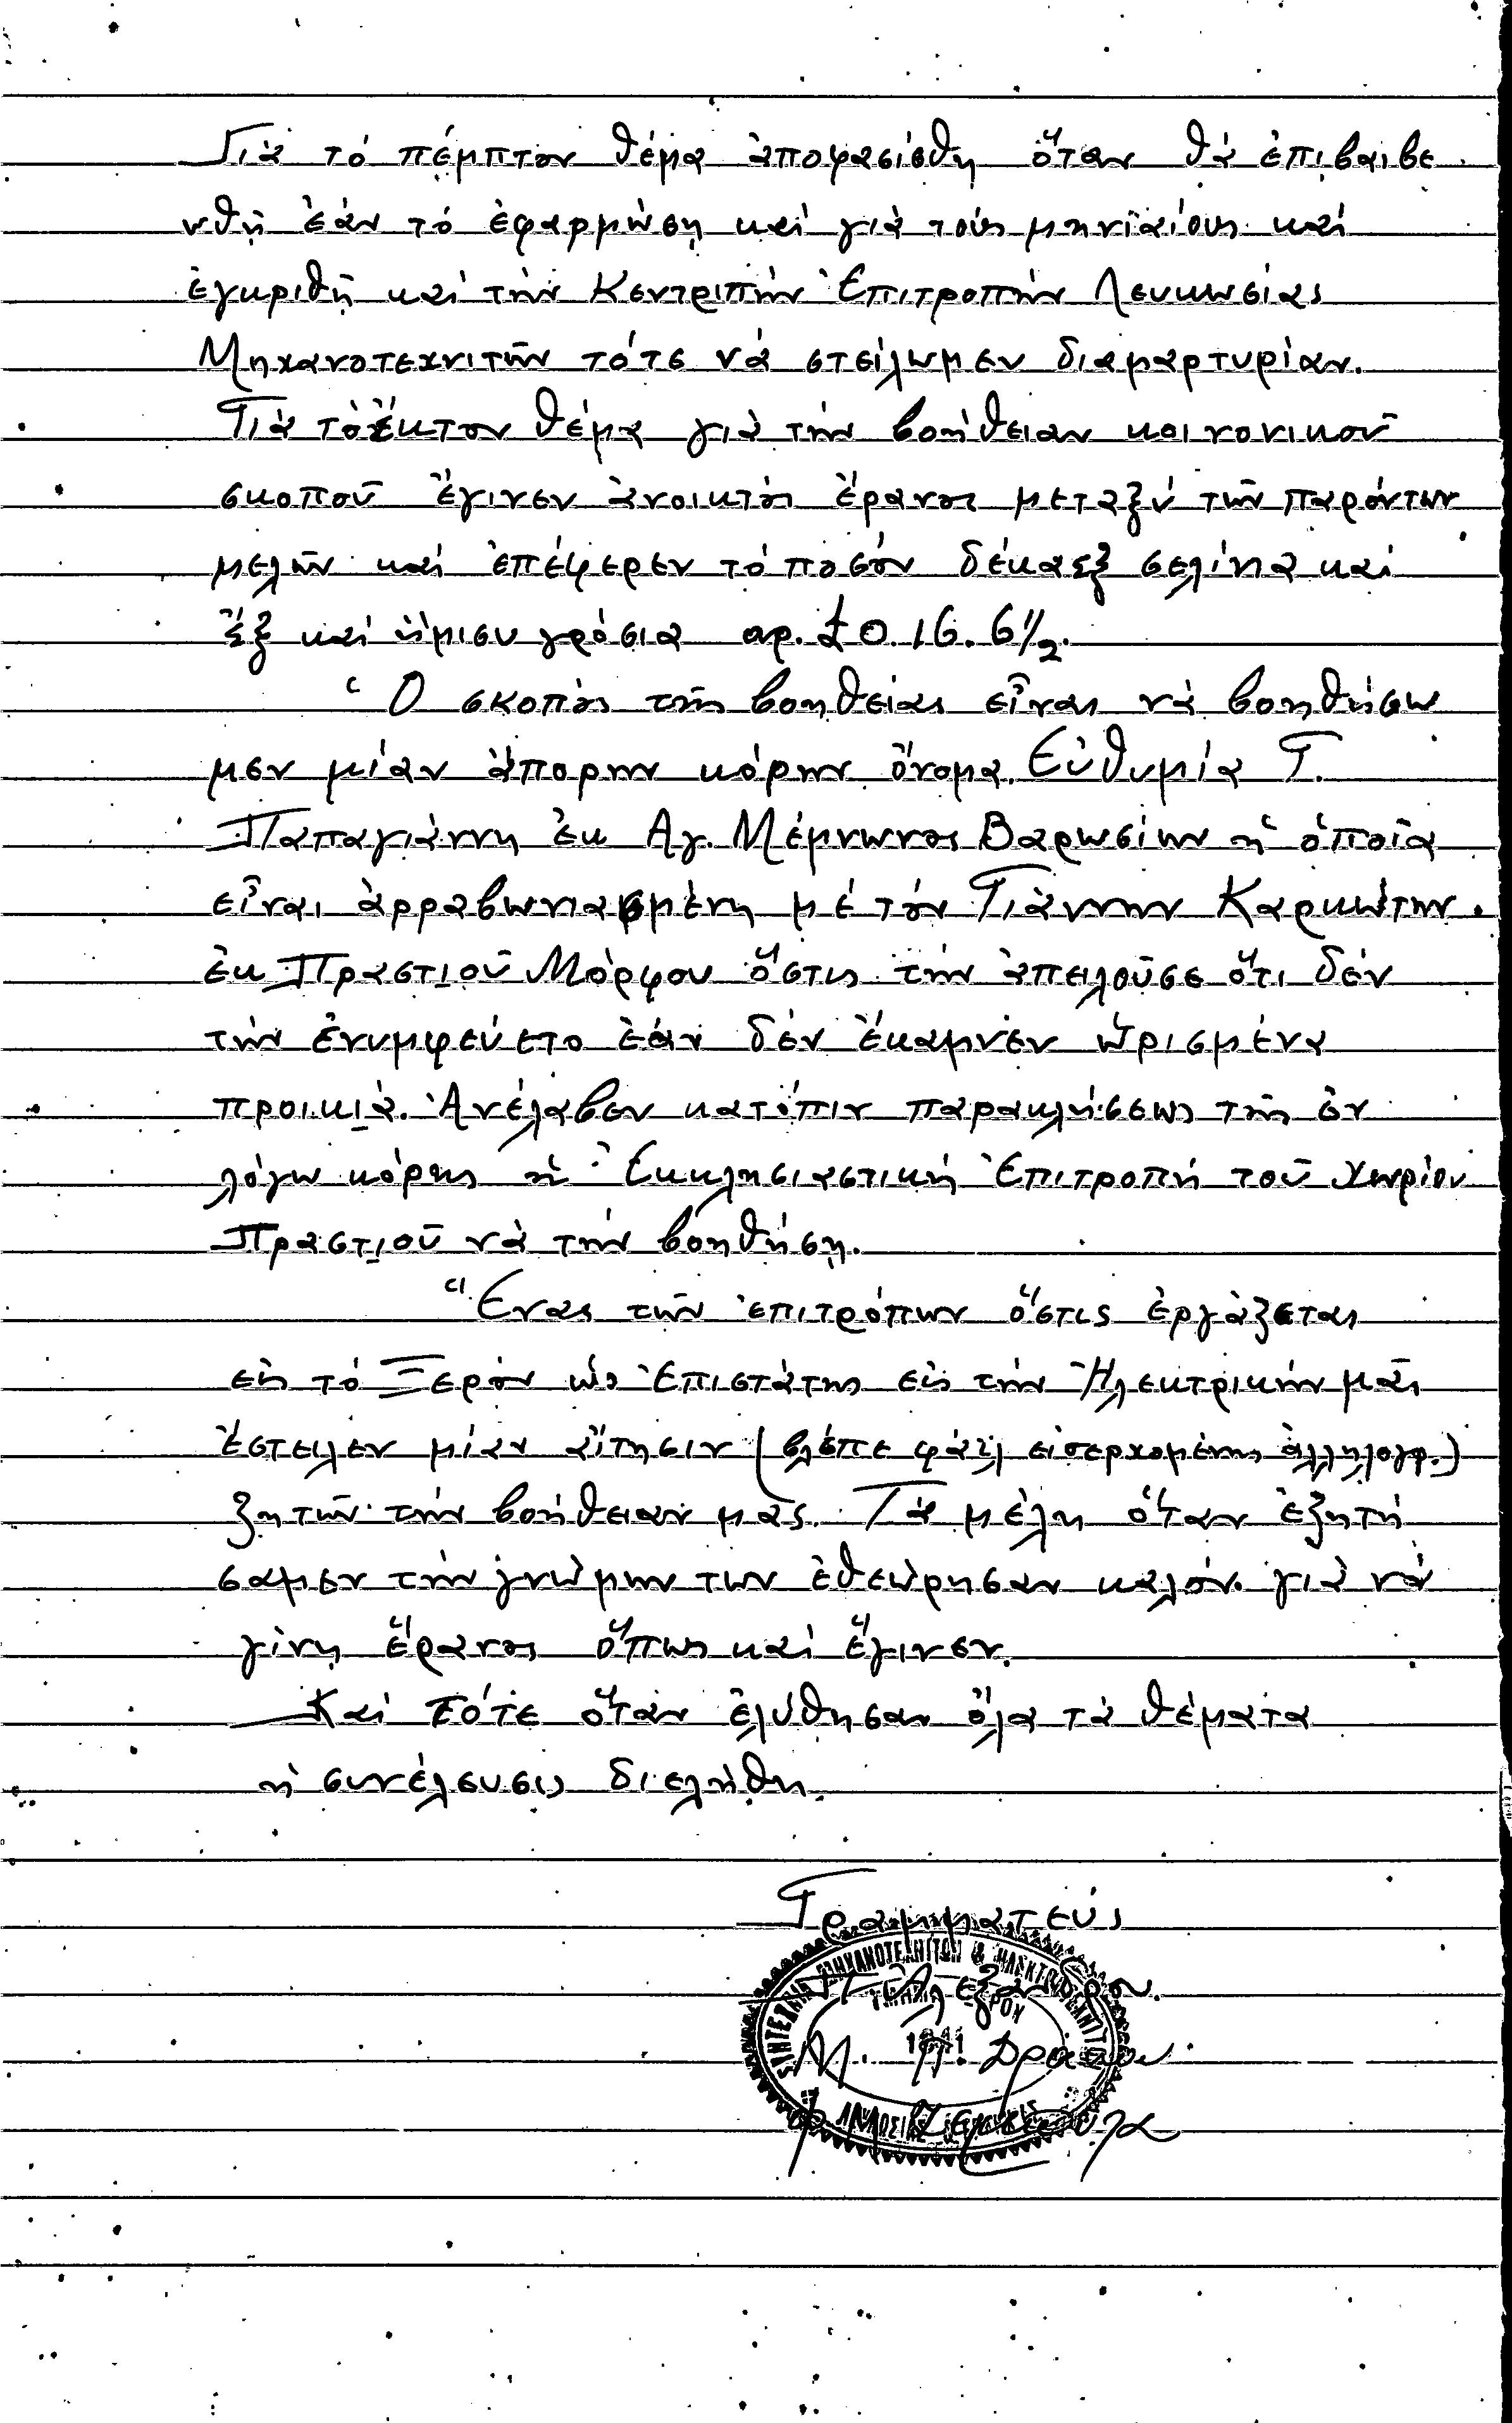 Γιὰ τό πέμπτον θέμα ἀποφασίσθη ὅταν θὰ ἐπιβαιβε
νθῇ ἐάν τό ἐφαρμώσῃ καί γιὰ τούς μηνιαίους καί
ἐγκριθῇ καί τήν Κεντριπήν Ἐπιτροπήν Λευκωσίας
Μηχανοτεχνιτῶν τότε νά στείλωμεν διαμαρτυρίαν.
Γιά τό ἕκτον θέμα γιὰ τήν βοήθειαν κοινονικοῦ
σκοποῦ ἔγινεν ἀνοικτός ἔρανος μεταξύ τῶν παρόντων
μελῶν καί ἐπέφερεν τό ποσόν δέκαεξ σελίνια καί
ἕξ καί ἥμισυ γρόσια αρ. £0.16.6½.
Ὁ σκοπός τῆς βοηθείας εἶναι νὰ βοηθήσω
μεν μίαν ἄπορην κόρην ὄνομα Εὐθυμία Γ.
Παπαγιάννη ἐκ Αγ. Μέμνωνος Βαρωσίων ἡ ὁποῖα
εἶναι ἀρραβωνιασμένη μέ τόν Γιάννην Καρκώτην.
ἐκ Πραστιοῦ Μόρφου ὅστις τήν ἀπειλοῦσε ὅτι δέν
τήν ἐνυμφεύετο ἐάν δέν ἔκαμνεν ὡρισμένα
προικιά. Ἀνέλαβεν κατόπιν παρακλήσεως τῆς ἐν
λόγω κόρης ἡ Ἐκκλησιαστική Ἐπιτροπή τοῦ χωρίου
Πραστιοῦ νὰ τήν βοηθήσῃ.
Ἕνας τῶν ἐπιτρόπων ὅστις ἐργάζεται
εἰς τό Ξερόν ὡς Ἐπιστάτης εἰς τήν Ἠλεκτρικήν μᾶς
ἔστειλεν μίαν αἴτησιν (βλέπε φάϊλ εἰσερχομένης ἀλληλογρ.)
ζητῶν τήν βοήθειαν μας. Τά μέλη ὅταν ἐζητή
σαμεν τήν γνώμην των ἐθεώρησαν καλόν γιὰ νά
γίνῃ ἔρανος ὅπως καί ἔγινεν.
Καί τότε ὅταν ἐλύθησαν ὅλα τά θέματα
ἡ συνέλευσις διελήθη.
Γραμματεύς
ΣΥΝΤΕΧΝΙΑ ΜΗΧΑΝΟΤΕΧΝΙΤΩΝ & ΗΛΕΚΤΡΟΤΕΧΝΙΤΩΝ
Π. Ἀλεξάνδρου.
1941